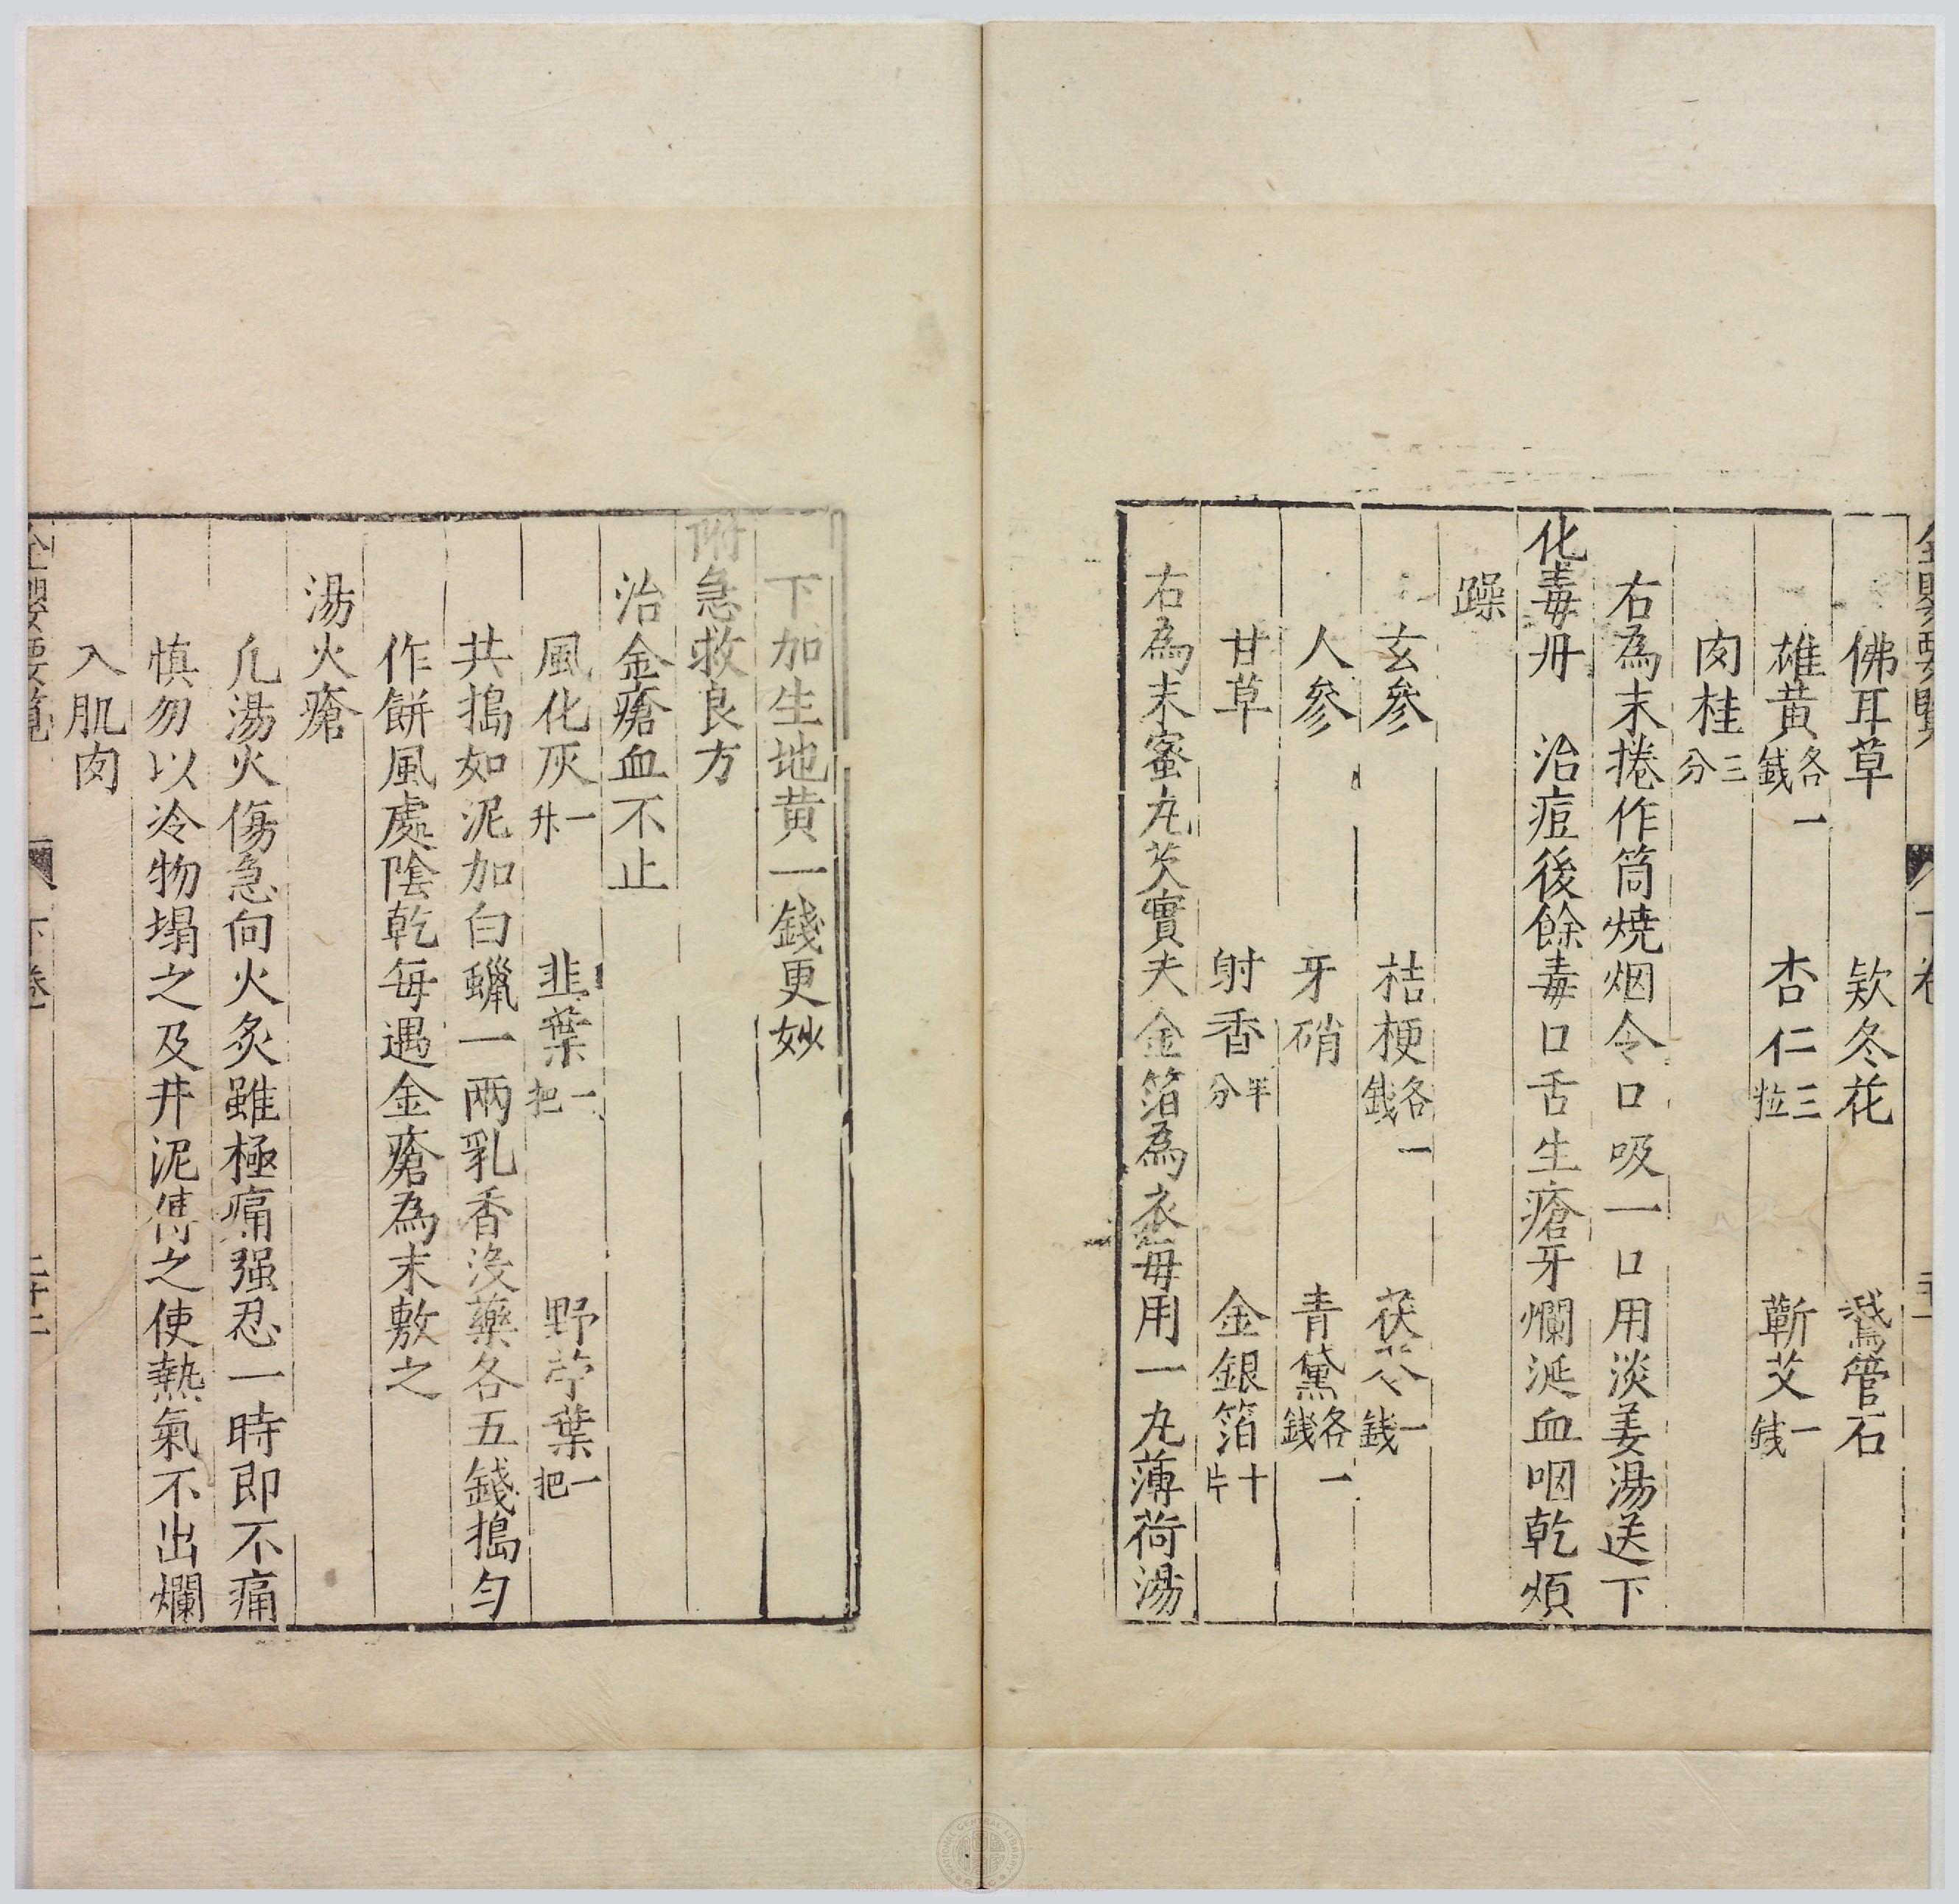 佛耳草　欵冬花　鵞管石
雄黄各一錢　杏仁三粒　蘄艾一錢
肉桂三分
右為末捲作筒燒烟令口吸一口用淡姜湯送下
化毒丹　治痘後餘毒口舌生瘡牙爛涎血咽乾煩
躁
玄參　桔梗各一錢　茯苓一錢
人參　牙硝　青黛各一錢
甘草　射香半分　金銀箔十片
右為末蜜丸芡實大金箔為衣每用一丸薄荷湯
下加生地黄一錢更妙
附急救良方
治金瘡血不止
風化灰一升　韭葉一把　野苧葉一把
共搗如泥加白蠟一兩乳香沒藥各五錢搗勻
作餅風處陰乾每遇金瘡為末敷之
湯火瘡
凢湯火傷急向火炙雖極痛强忍一時即不痛
慎勿以冷物塌之及井泥傅之使熱氣不出爛
入肌肉
下卷